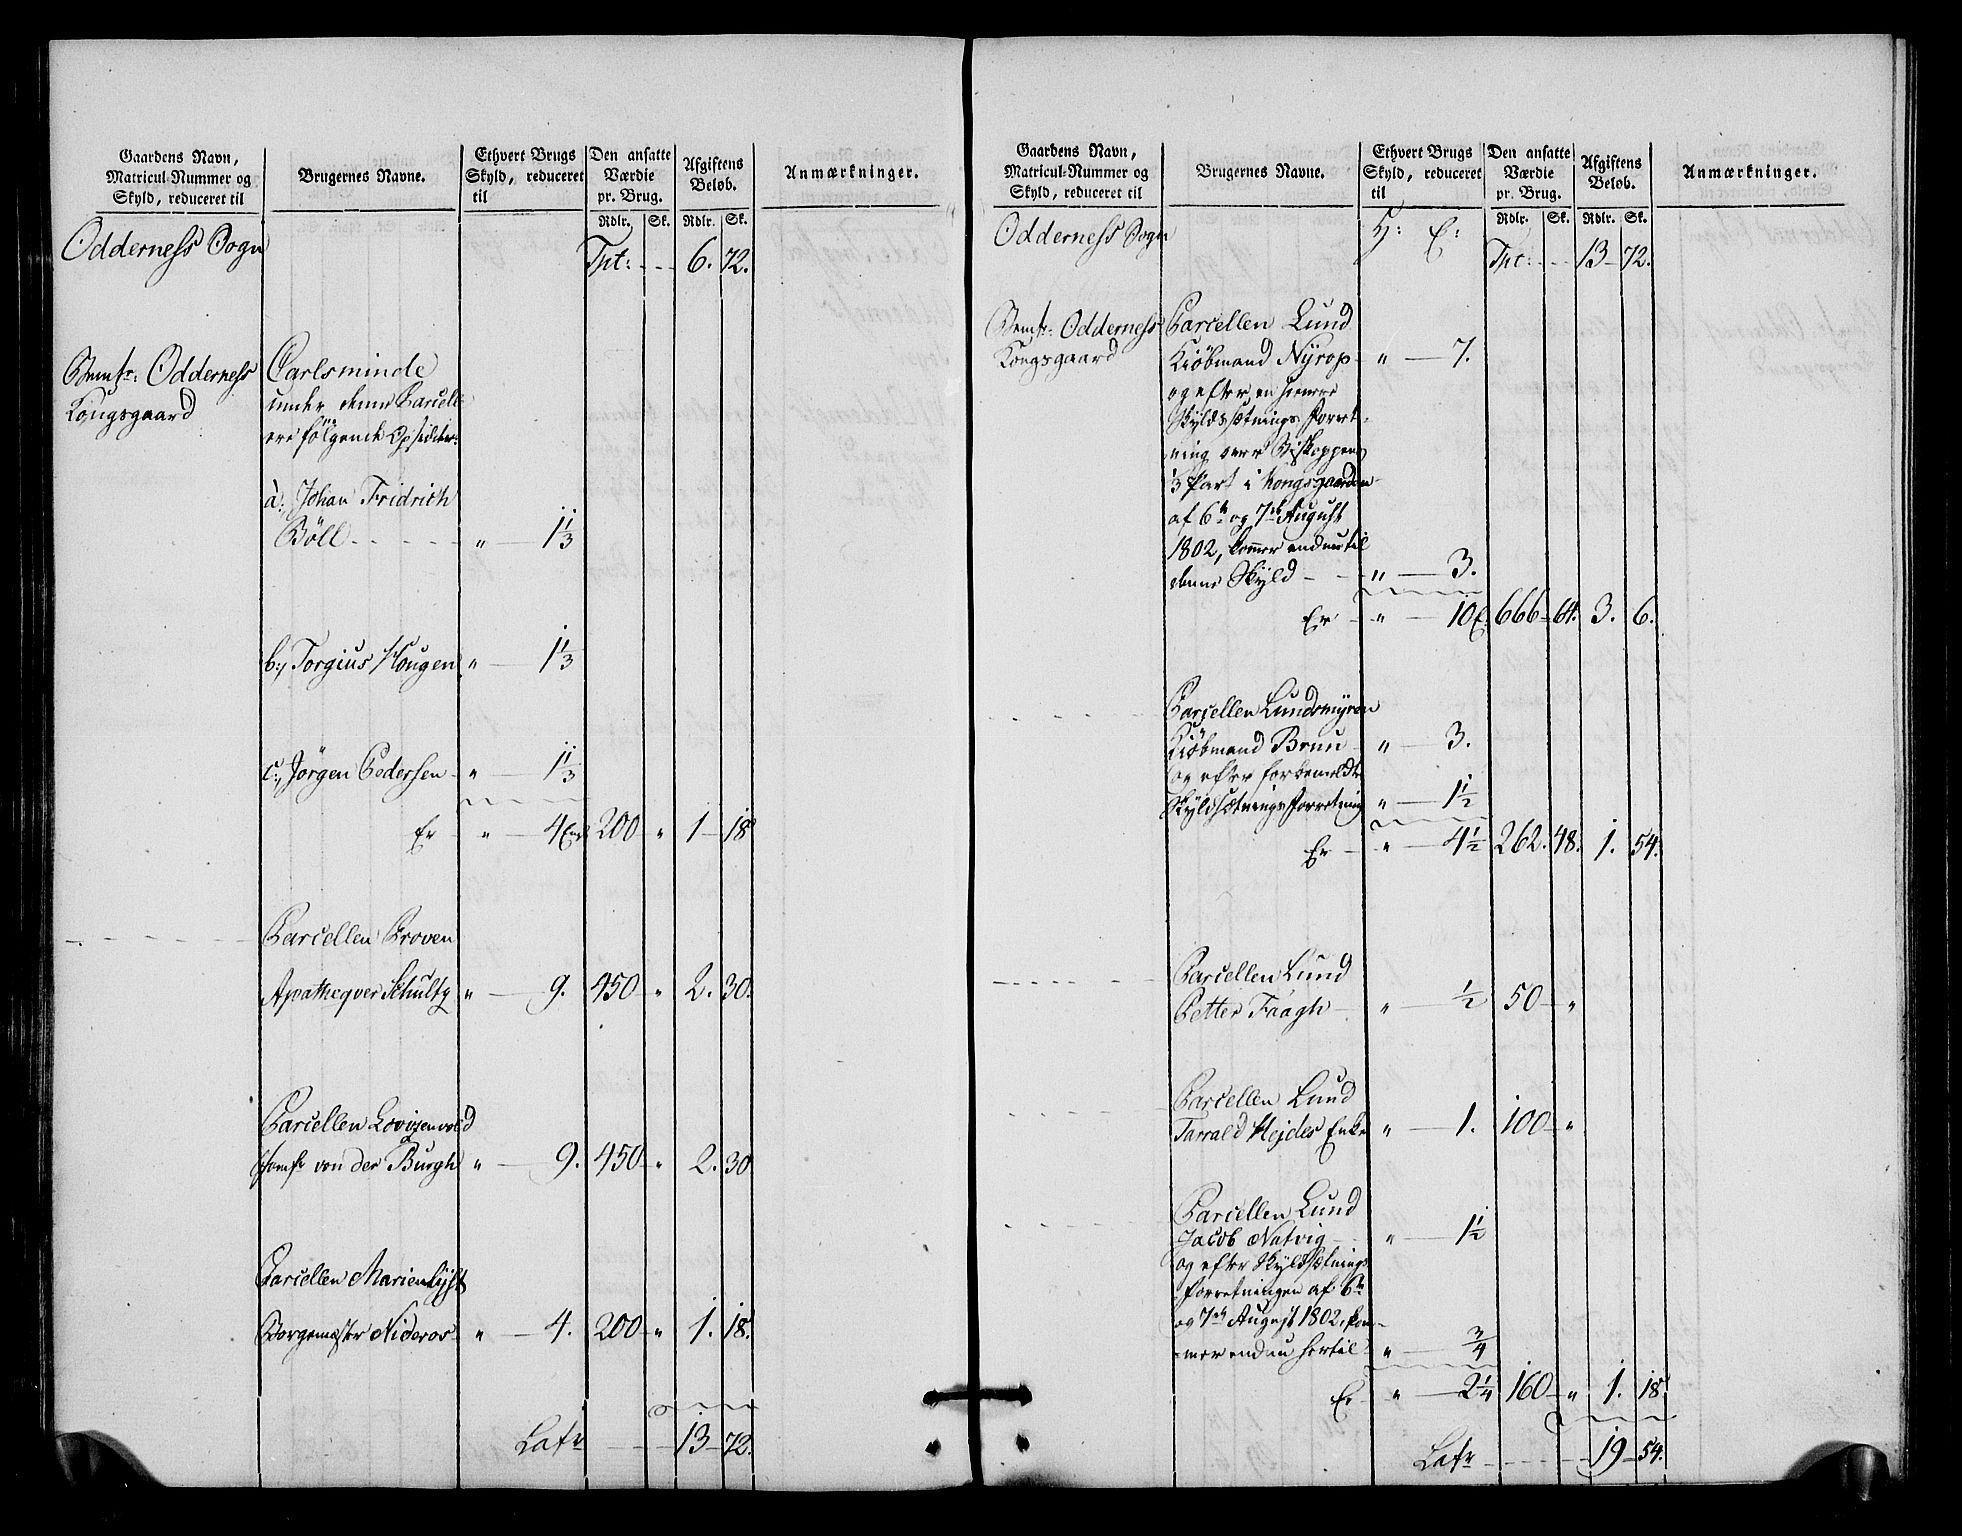 Gaardens Navn,
Matricul-Nummer og
Skyld, reduceret til
Brugernes Navne.
Ethvert Brugs
Skyld, reduceret
til
Den ansatte
Værdie
pr. Brug.
Rdlr. Sk.
Afgiftens
Beløb.
Rdlr. Sk.
Anmærkninger.
Odderness Sogn
Tpt: 6. 72.
Odderness
Kongsgaard
Carlsminde
under denne Parcell
ere følgende Opsidder:
a:, Johan Fridrich
Böll " 1 1/3
b:, Torgius Hougen " 1 1/3
c:, Jörgen Pedersen " 1 1/3
Er " 4 200 " 1 18
Parcellen Proven
Apatheqver Schultz " 9. 450 " 2. 30.
Parcellen Lovizenvold
von der Burgh " 9. 450 " 2. 30
Parcellen Marienlyst
Borgemester Nideros " 4. 200 " 1. 18.
Latr 13 72.
Gaardens Navn,
Matricul-Nummer og
Skyld, reduceret til
Brugernes Navne.
Ethvert Brugs
Skyld, reduceret
til
Den ansatte
Værdie
pr. Brug.
Rdlr. Sk.
Afgiftens
Beløb.
Rdlr. Sk.
Anmærkninger.
Odderness Sogn
H: E:
Tpt: 13 72.
Odderness
Kongsgaard
Parcellen Lund
Kiöbmand Nyrop " 7.
og efter en senere
Skyldsætnings Forret-
ning over Biskoppens
1/3 Part i Kongsgaarden
af 6te og 7de August
1802, kommer endnu til
denne Skyld " 3.
Er " 10 E. 666 64. 3. 6.
Parcellen Lundsmyren
Kiöbmand Bruu " 3.
og efter forbemeldte
Skyldsætnings Forretning " 1 1/2
Er " 4 1/2 262. 48. 1. 54.
Parcellen Lund
Petter Faagh " 1/2 50 "
Parcellen Lund
Tarrald Hejdes Enke " 1. 100 "
Parcellen Lund
Jacob Natvig " 1 1/2
og efter Skyldsætnings
Forretningen af 6te
og 7de August 1802, kom-
mer endnu hertil " 3/4
Er " 2 1/4 160 " 1. 18
Latr 19 54.